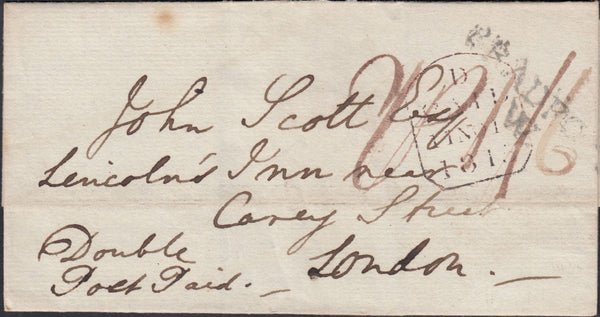 John Scott Esq
Lincoln's Inn near
Carey Street
London. —
Double
Post Paid. —